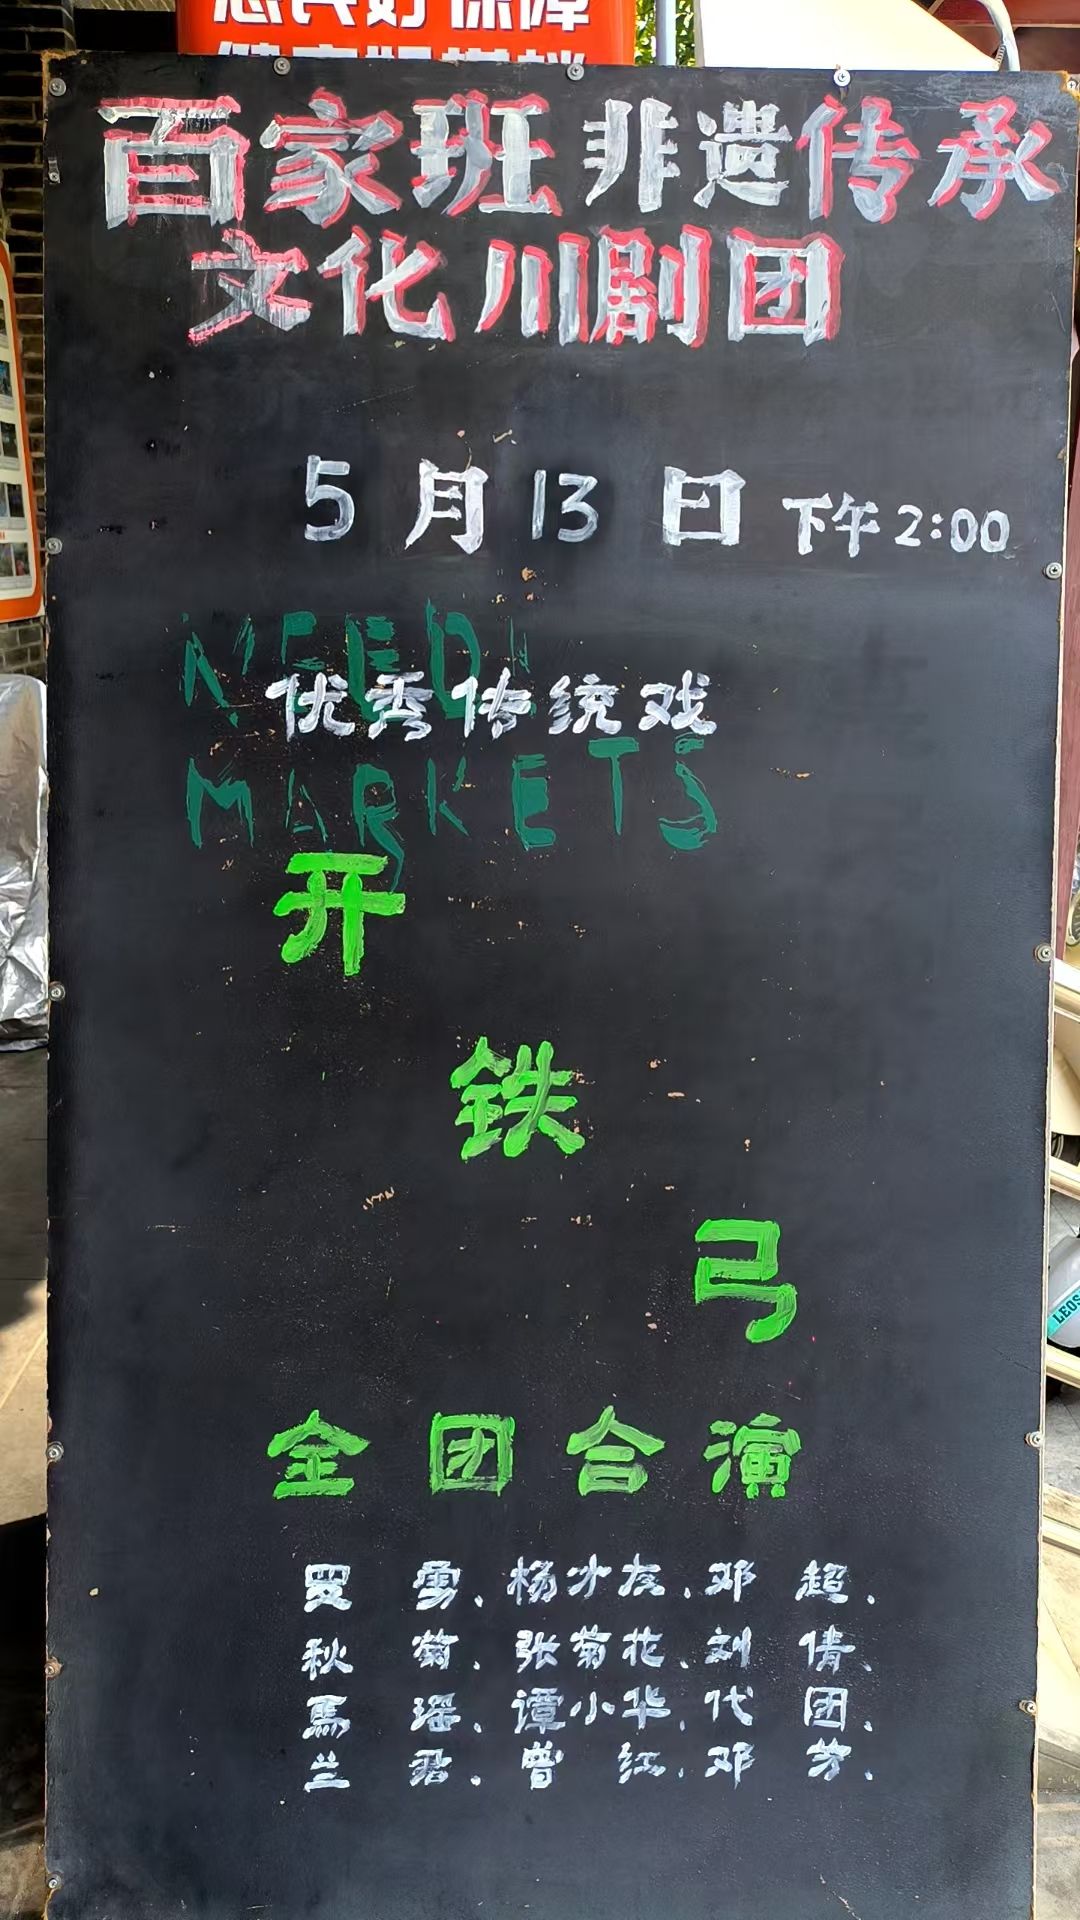 惠民好保障
百家班非遗传承
文化川剧团
5月13日 下午2:00
NEEDI
优秀传统戏
MARKETS
开
铁
弓
全团合演
罗 勇、杨才友、邓 超、
秋 菊、张菊花、刘 倩、
馬 瑶、谭小华、代 团、
兰 君、曾 红、邓 芳、
LEOS